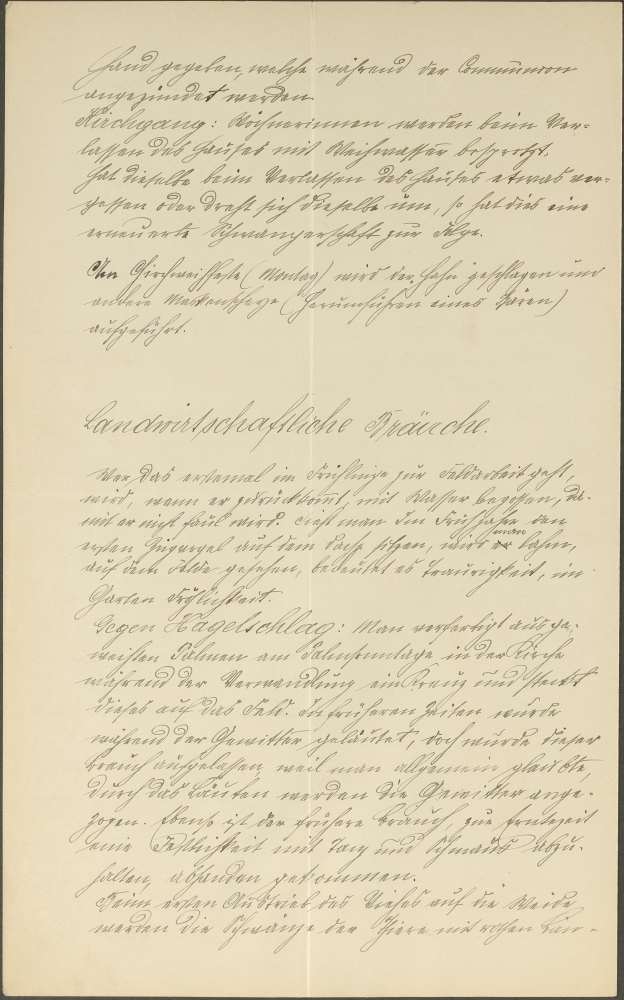 Hand gegeben, welche während der Communion
angezündet werden.
Kirchgang: Wöchnerinnen werden beim Ver-
lassen des Hauses mit Weihwasser bespritzt.
Hat dieselbe beim Verlassen des Hauses etwas ver-
gessen oder dreht sich dieselbe um, so hat dies eine
erneuerte Schwangerschaft zur Folge.
Am Kirchweihfeste (Montag) wird der Hahn geschlagen und
andere Maskenscherze (Herumführen eines Bären)
aufgeführt.
Landwirtschaftliche Bräuche.
Wer das erstemal im Frühlinge zur Feldarbeit geht,
wird, wenn er zurückkommt, mit Wasser begossen, da-
mit er nicht faul wird. Sieht man im Frühjahre den
ersten auf dem Dache sitzen, wird man lahm,
auf dem Felde gesehen, bedeutet es Traurigkeit, im
Garten Fröhlichkeit.
Gegen Hagelschlag: Man verfertigt aus ge-
weihten Palmen am Palmsonntage in der Kirche
während der Verwandlung ein Kreuz und steckt
dieses auf das Feld. In früheren Zeiten wurde
während der Gewitter geläutet, doch wurde dieser
Brauch aufgelassen, weil man allgemein glaubte,
durch das Läuten werden die Gewitter ange-
zogen. Ebenso ist der frühere Brauch, zur Erntezeit
eine Festlichkeit mit Tanz und Schmaus abzu-
halten, abhanden gekommen.
Beim ersten Austrieb des Viehes auf die Weide
werden die Schwänze der Thiere mit rothen Bän-